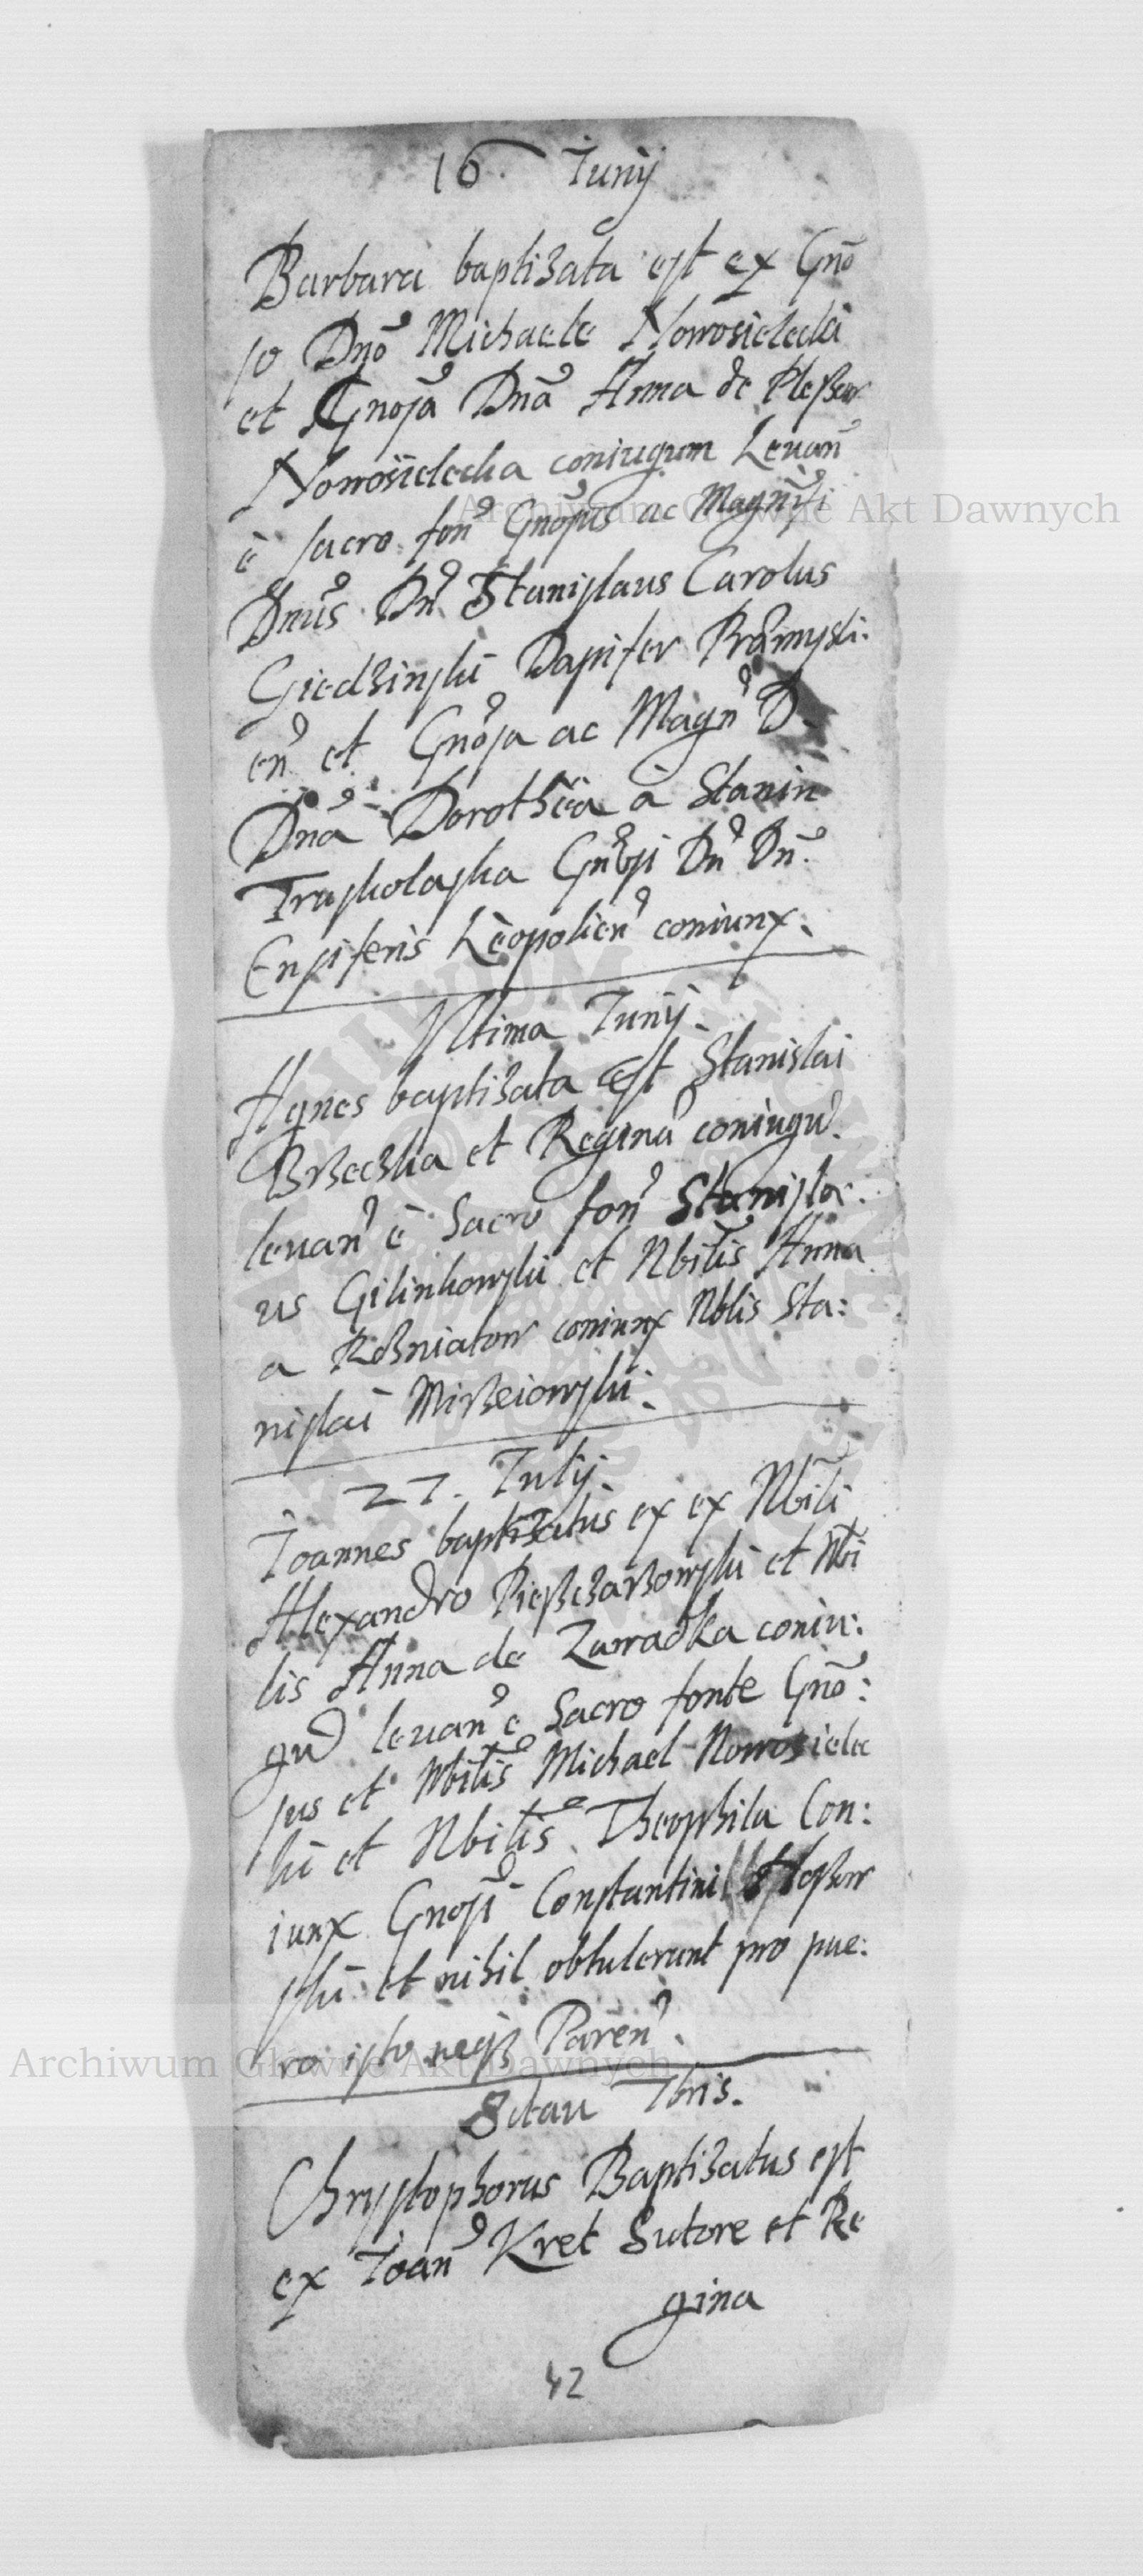 16 Junij
Barbara baptizata est ex Gño
so Dño Michaele Nowosielecki
et Gnosa Dña Anna de Pleszow
Nowosielecka coniugum Levañ
è sacro foñ Gnosus ac Magnifi
Dnus Dñ Stanislaus Carolus
Giedzinski Dapifer Præmysli:
eñ et Gnosa ac Magñ D.
Dña Dorothea à Stanin
Traskolaska Gnosi Dñ Dñ
Ensiferis Leopolieñ coniunx.
Vltima Junij.
Agnes baptizata est Stanislai
Brzeczka et Regina coniugũ
levañ è Sacro foñ Stanisla:
us Gilinkowski et Nbilis Anna
a Rozniatow coniunx Nblis Sta:
nislai Miszeiowski.
27. Julij.
Joannes baptizatus ex ex Nbili
Alexandro Pieszczaszowski et Nbi
lis Anna de Zawadka coniu:
gũ levañ e Sacro fonte Gño:
sus et Nbilis Michael Nowosielec
ki et Nbilis Theophila Con:
iunx Gnosi Constantini Pleszow
ski et nihil obtulerunt pro pue:
ro isto neqz Pareñ.
8ctau 7bris.
Chrystophorus Baptizatus est
ex Joañ Kret Sutore et Re
gina
42
Archiwum Główne Akt Dawnych
Archiwum Główne Akt Dawnych